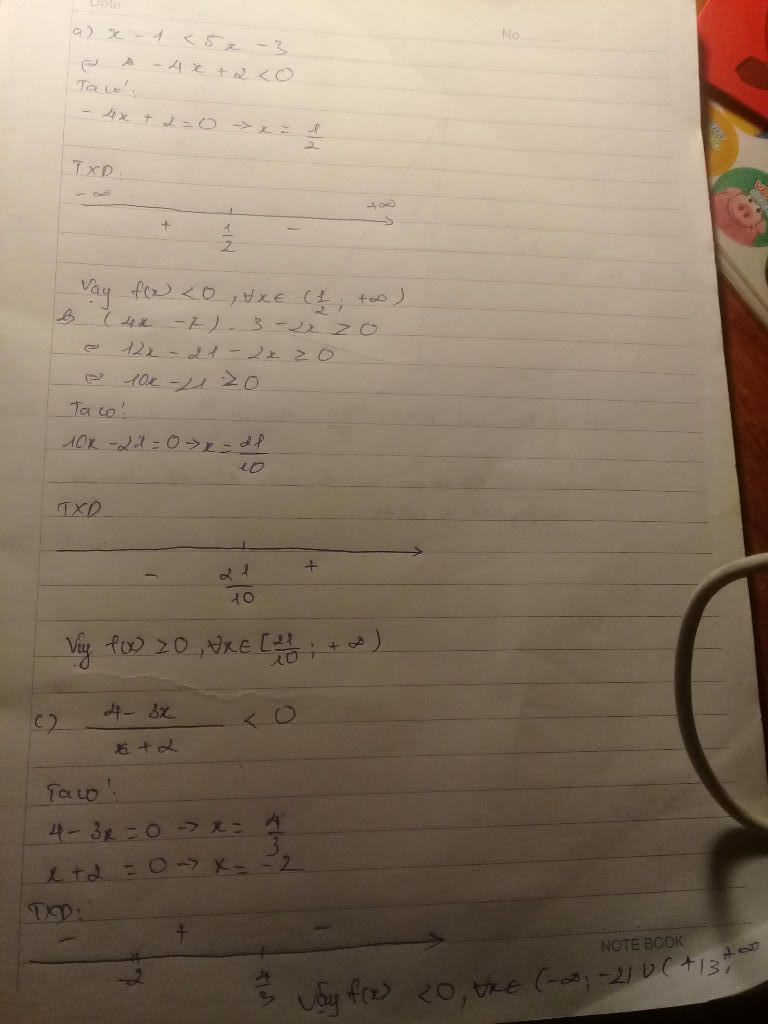 Date
No............
a) x - 1 < 5x - 3
⇔ - 4x + 2 < 0
Ta có:
- 4x + 2 = 0 → x = 1/2
TXD:
-∞ +∞
+ 1/2 -
Vậy f(x) < 0, ∀x ∈ (1/2; +∞)
b) (4x - 7). 3 - 2x ≥ 0
⇔ 12x - 21 - 2x ≥ 0
⇔ 10x - 21 ≥ 0
Ta có:
10x - 21 = 0 → x = 21/10
TXD
- 21/10 +
Vậy f(x) ≥ 0, ∀x ∈ [21/10; +∞)
c) (4 - 3x)/(x + 2) < 0
Ta có:
4 - 3x = 0 → x = 4/3
x + 2 = 0 → x = -2
TXD:
- + -
-2 4/3
NOTE BOOK
Vậy f(x) < 0, ∀x ∈ (-∞; -2) ∪ (4/3; +∞